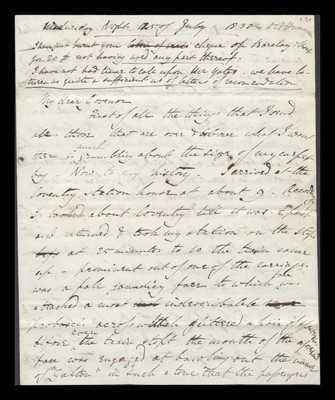 Wednesday Night 25 of July 1838
I have not burnt your cheque of Barclay & Co
for 20 £ not having used any part thereof.
I have not had time to call upon Mr Yates, we have
sufficient of letters of recommendation
My dear Governor
First of all the things that I send
are those that are over & above what I want
there is much grumbling about the size of my carpet
bag. Now to my history. I arrived at the
Coventry station house at about 9.
I walked about Coventry till it was
and returned & took my station on the
at 25 minutes to 10 the train came
up. prominent out of one of the carriages
was a pale face to which was
attached a most indescribable
proboscis across which glittered a pair of
before even the train stopt the mouth of the
face was engaged at bawling out the name
of "Galton" in such a tone that the passengers